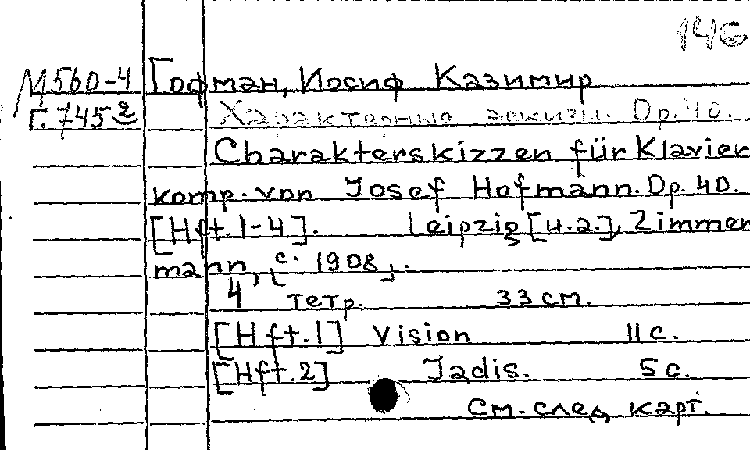 146
М560-4 Гофман, Иосиф Казимир
Г.745² Характерные эскизы. Op.40.
Charakterskizzen für Klavier
komp. von Josef Hofmann. Op. 40.
[Hft.1-4]. Leipzig [u.a.], Zimmer
mann, [c. 1908].
4 тетр. 33 см.
[Hft.1] Vision 11 с.
[Hft.2] Jadis. 5 с.
См. след карт.